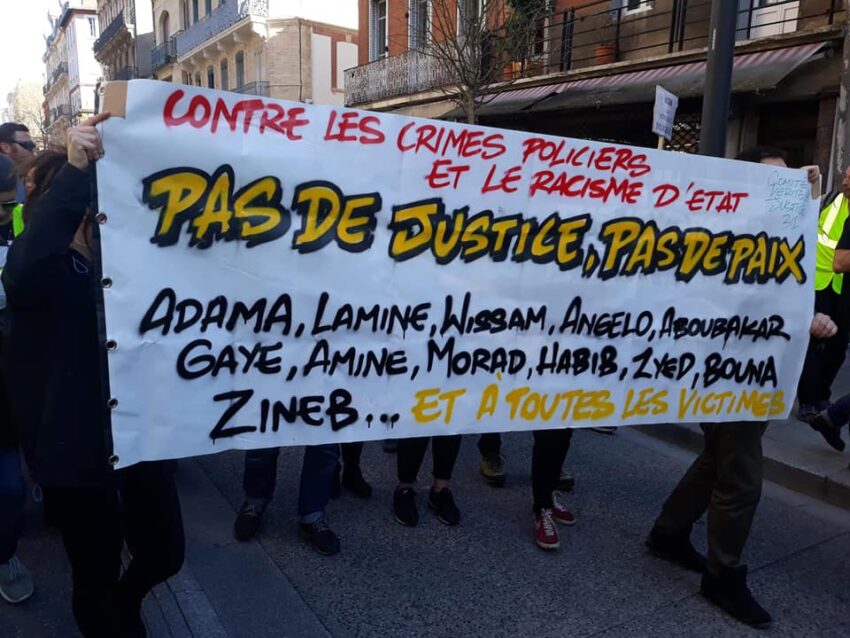 CONTRE LES CRIMES POLICIERS
ET LE RACISME D'ETAT
PAS DE JUSTICE, PAS DE PAIX
ADAMA, LAMINE, WISSAM, ANGELO, ABOUBAKAR
GAYE, AMINE, MORAD, HABIB, ZYED, BOUNA
ZINEB... ET À TOUTES LES VICTIMES
COMITÉ
VERITÉ
JUSTICE
31